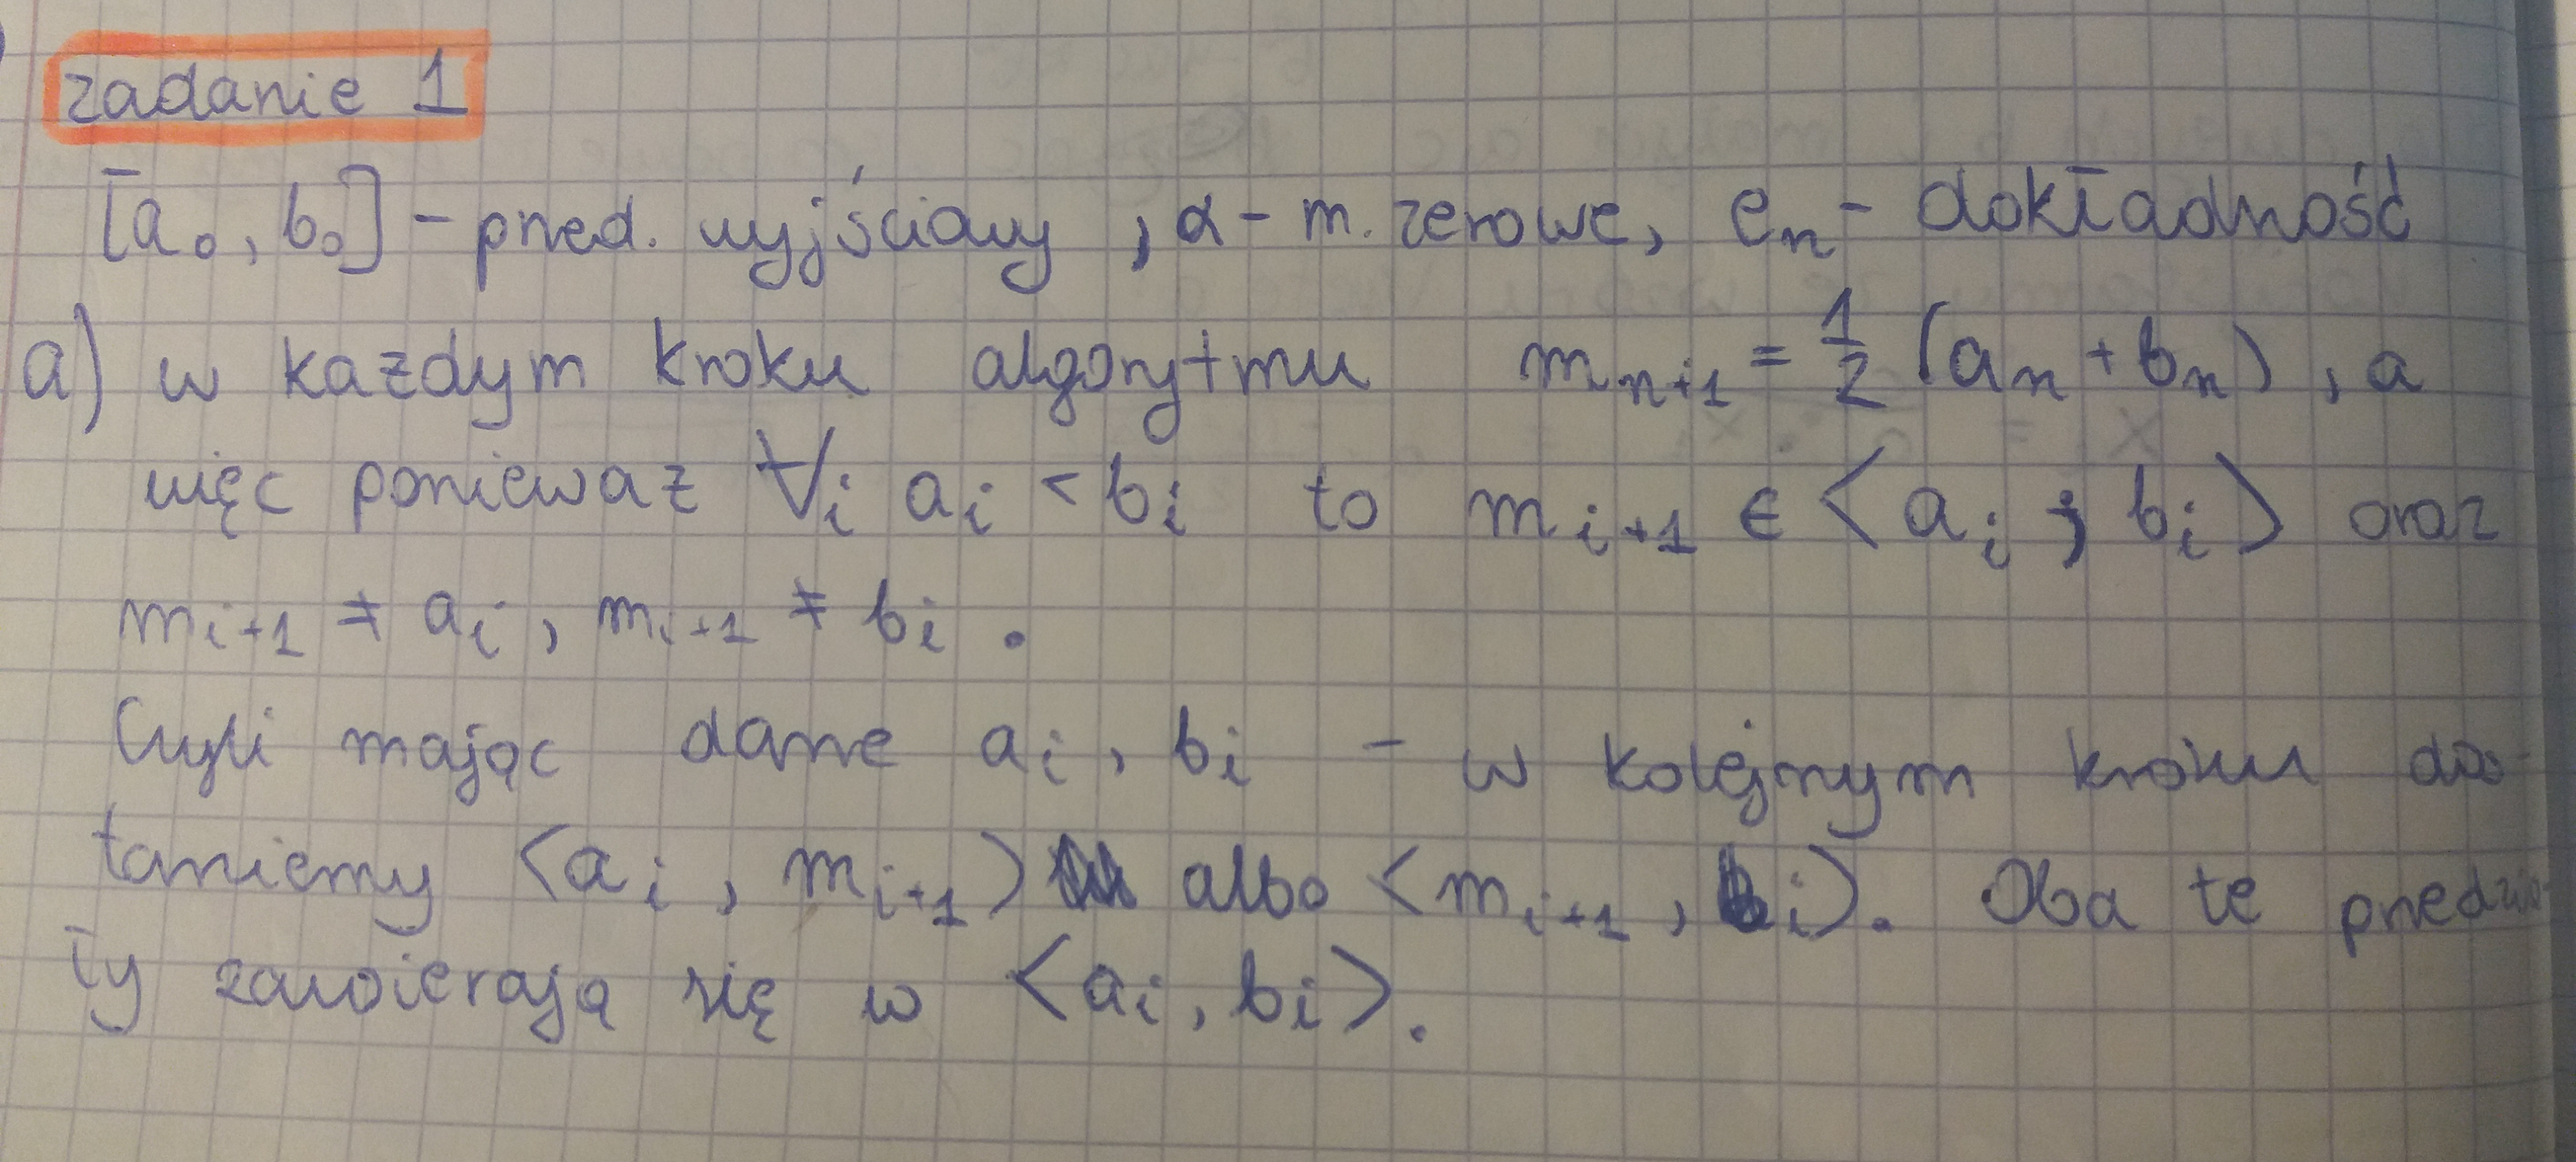 zadanie 1
[a₀, b₀] - przed. wyjściowy, α - m. zerowe, eₙ - dokładność
a) w każdym kroku algorytmu mₙ₊₁ = 1/2 (aₙ + bₙ), a
więc ponieważ ∀ᵢ aᵢ < bᵢ to mᵢ₊₁ ∈ <aᵢ ; bᵢ> oraz
mᵢ₊₁ ≠ aᵢ, mᵢ₊₁ ≠ bᵢ.
Czyli mając dane aᵢ, bᵢ - w kolejnym kroku dos-
taniemy <aᵢ, mᵢ₊₁> albo <mᵢ₊₁, bᵢ>. Oba te przedzia-
ły zawierają się w <aᵢ, bᵢ>.